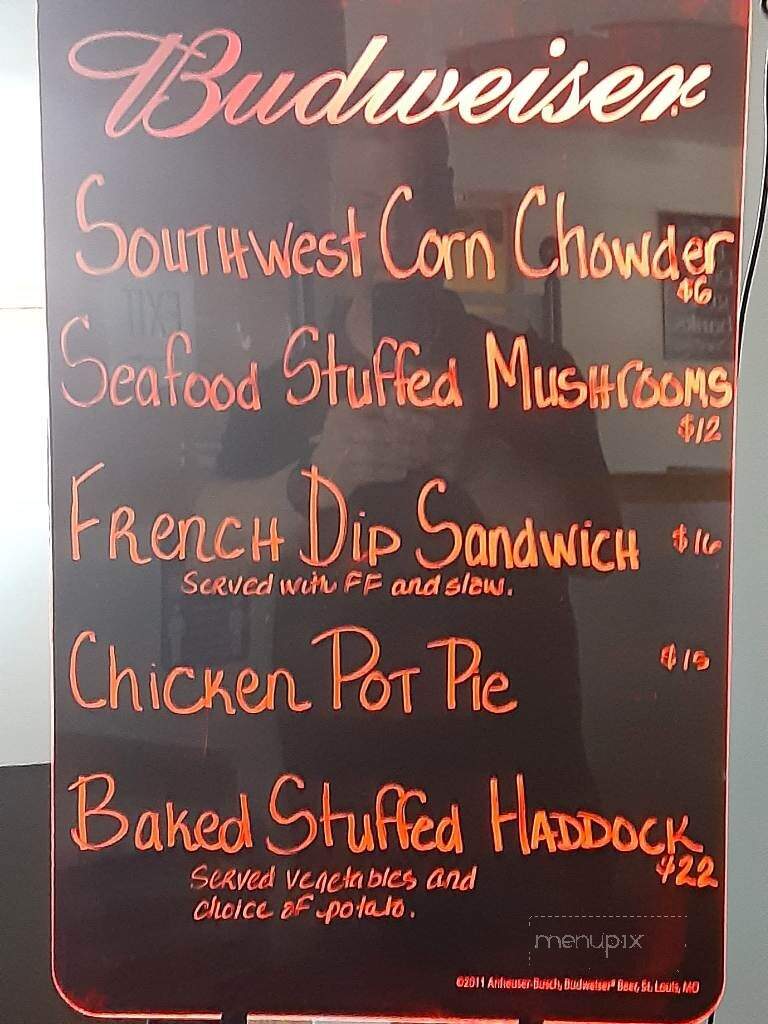 Budweiser
Southwest Corn Chowder
$6
Seafood Stuffed Mushrooms
$12
French Dip Sandwich $16
Served with FF and slaw.
Chicken Pot Pie $15
Baked Stuffed Haddock
$22
Served vegetables and
choice of potato.
menupix
©2011 Anheuser-Busch, Budweiser® Beer, St. Louis, MO
EXIT